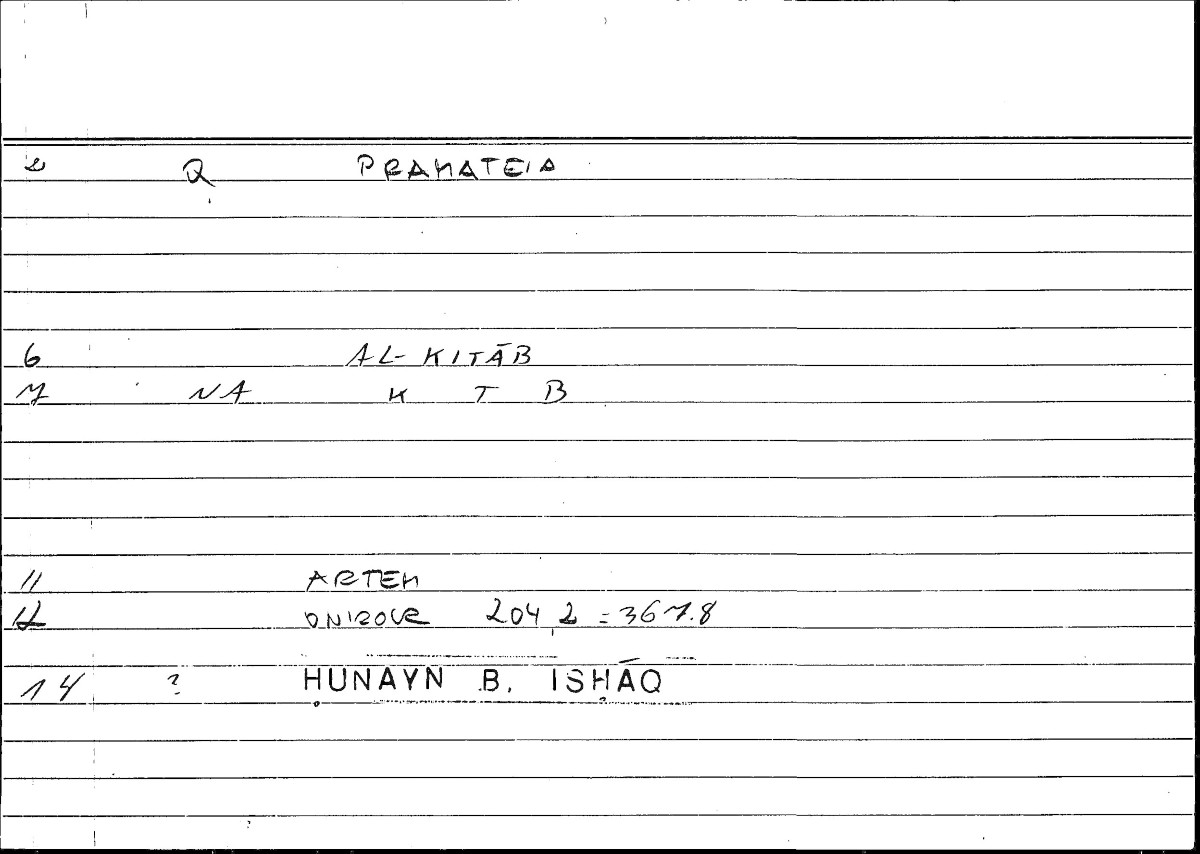 2 Q PRAMATEIA
6 AL-KITĀB
7 NA K T B
11 ARTEM
12 ONIROCR 204,2 = 367.8
14 ? ḤUNAYN B. ISḤĀQ